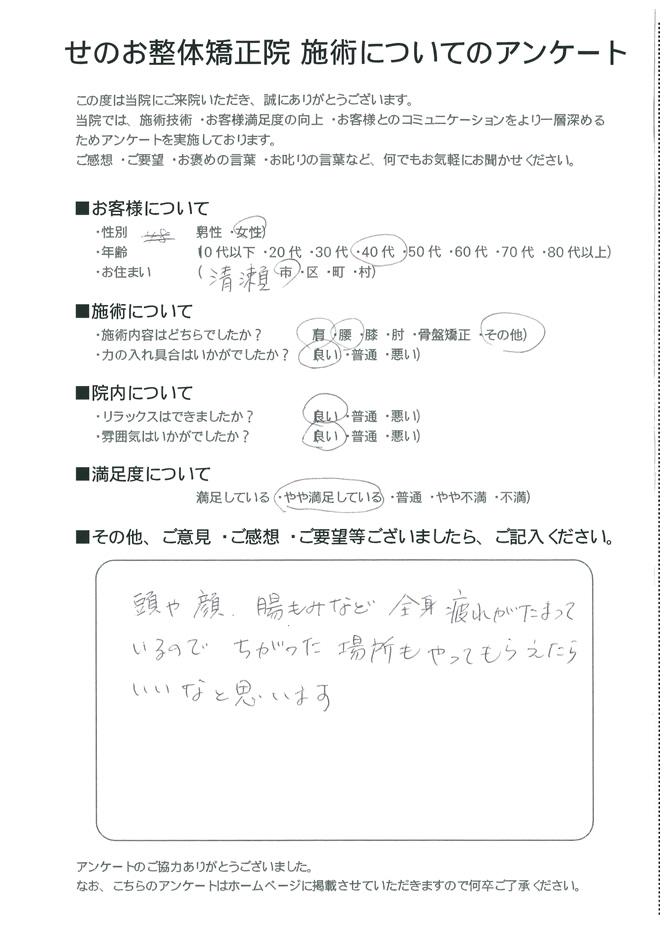 せのお整体矯正院 施術についてのアンケート
この度は当院にご来院いただき、誠にありがとうございます。
当院では、施術技術・お客様満足度の向上・お客様とのコミュニケーションをより一層深める
ためアンケートを実施しております。
ご感想・ご要望・お褒めの言葉・お叱りの言葉など、何でもお気軽にお聞かせください。
■お客様について
・性別 男性・女性)
・年齢 (10代以下・20代・30代・40代・50代・60代・70代・80代以上)
・お住まい (清瀬 市・区・町・村)
■施術について
・施術内容はどちらでしたか? 肩・腰・膝・肘・骨盤矯正・その他)
・力の入れ具合はいかがでしたか? 良い・普通・悪い)
■院内について
・リラックスはできましたか? 良い・普通・悪い)
・雰囲気はいかがでしたか? 良い・普通・悪い)
■満足度について
満足している・やや満足している・普通・やや不満・不満)
■その他、ご意見・ご感想・ご要望等ございましたら、ご記入ください。
頭や顔、腸もみなど 全身疲れがたまって
いるので ちがった場所もやってもらえたら
いいなと思います
アンケートのご協力ありがとうございました。
なお、こちらのアンケートはホームページに掲載させていただきますので何卒ご了承ください。